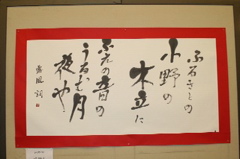 ふるさとの
小野の
木立に
笛の音の
うるむ月
夜や